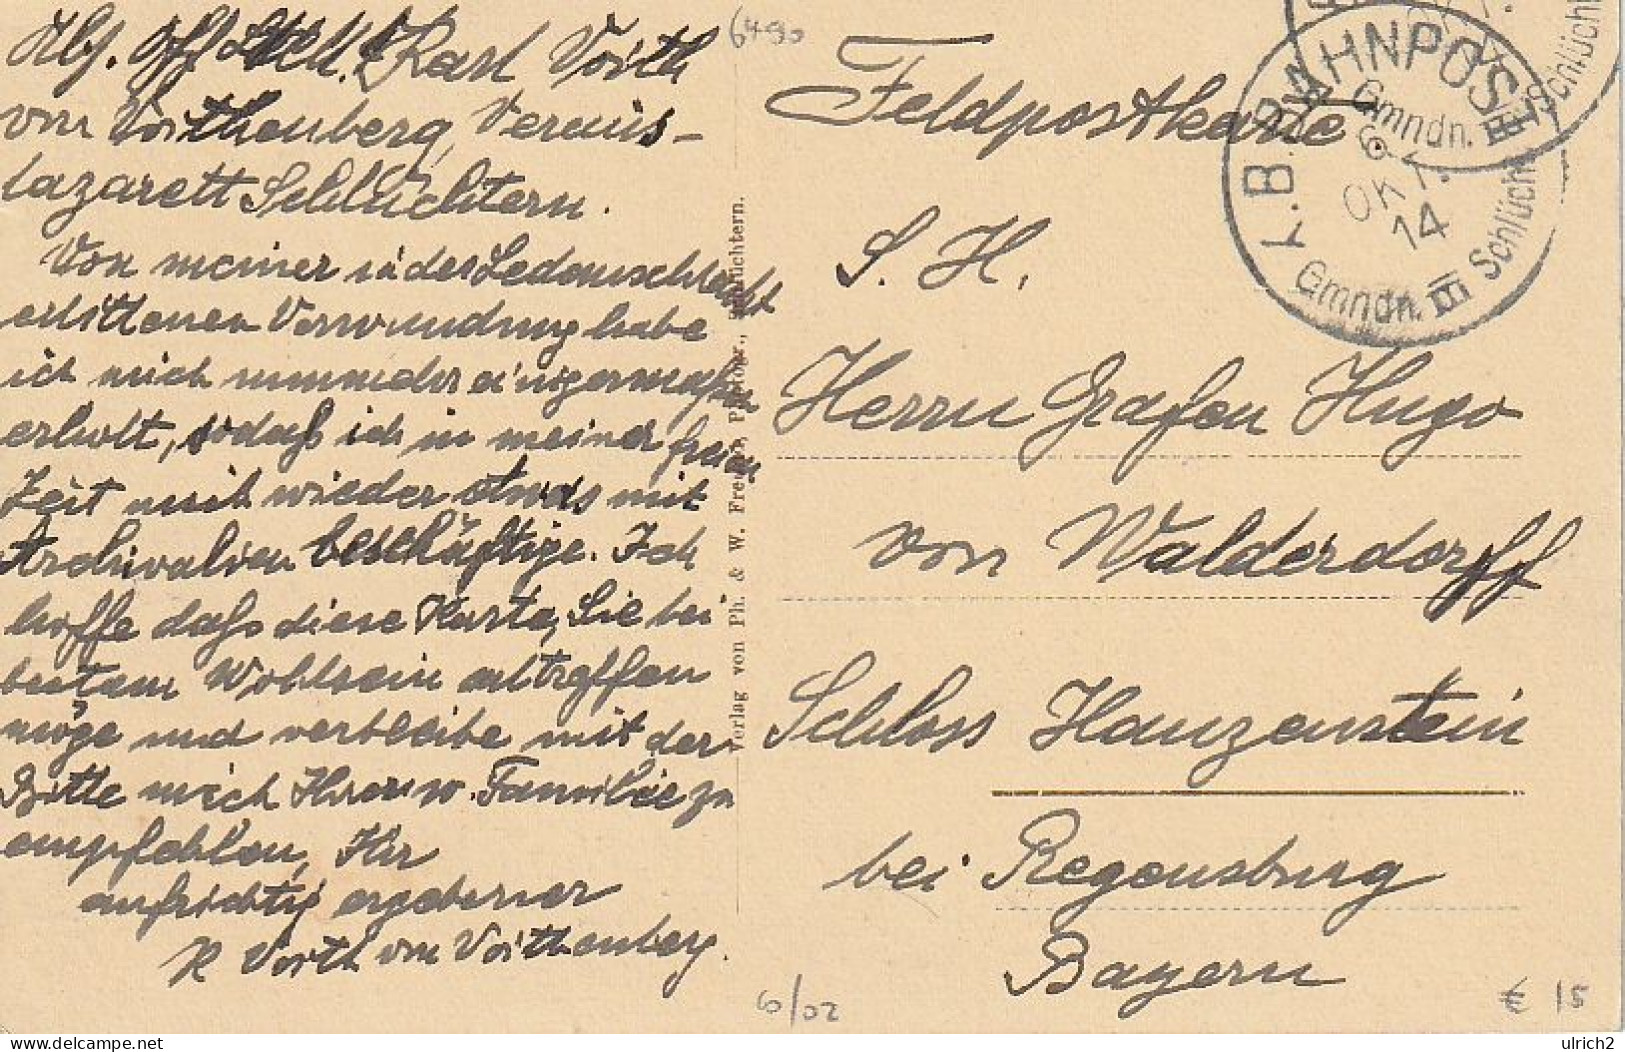 6490
Abs. Off. Stellv. Karl Voith
von Voithenberg, Vereins-
lazarett Schlüchtern.
Von meiner in der Sedanschlacht
erlittenen Verwundung habe
ich mich nunmehr einigermaßen
erholt, sodaß ich in meiner freien
Zeit mich wieder etwas mit
Archivalien beschäftige. Ich
hoffe daß diese Karte, Sie bei
bestem Wohlsein antreffen
möge und verbleibe mit der
Bitte mich Ihrer w. Familie zu
empfehlen, Ihr
aufrichtig ergebener
K Voith von Voithenberg.
Verlag von Ph. & W. Photogr., Schlüchtern.
Feldpostkarte
K.B. BAHNPOST
Gmndn. III Schlücht
6 OKT. 14
Gmndn. III Schlücht
S. H.
Herrn Grafen Hugo
von Walderdorff
Schloss Hauzenstein
bei Regensburg
Bayern
6/02
€ 15
delcampe.net
ulrich2